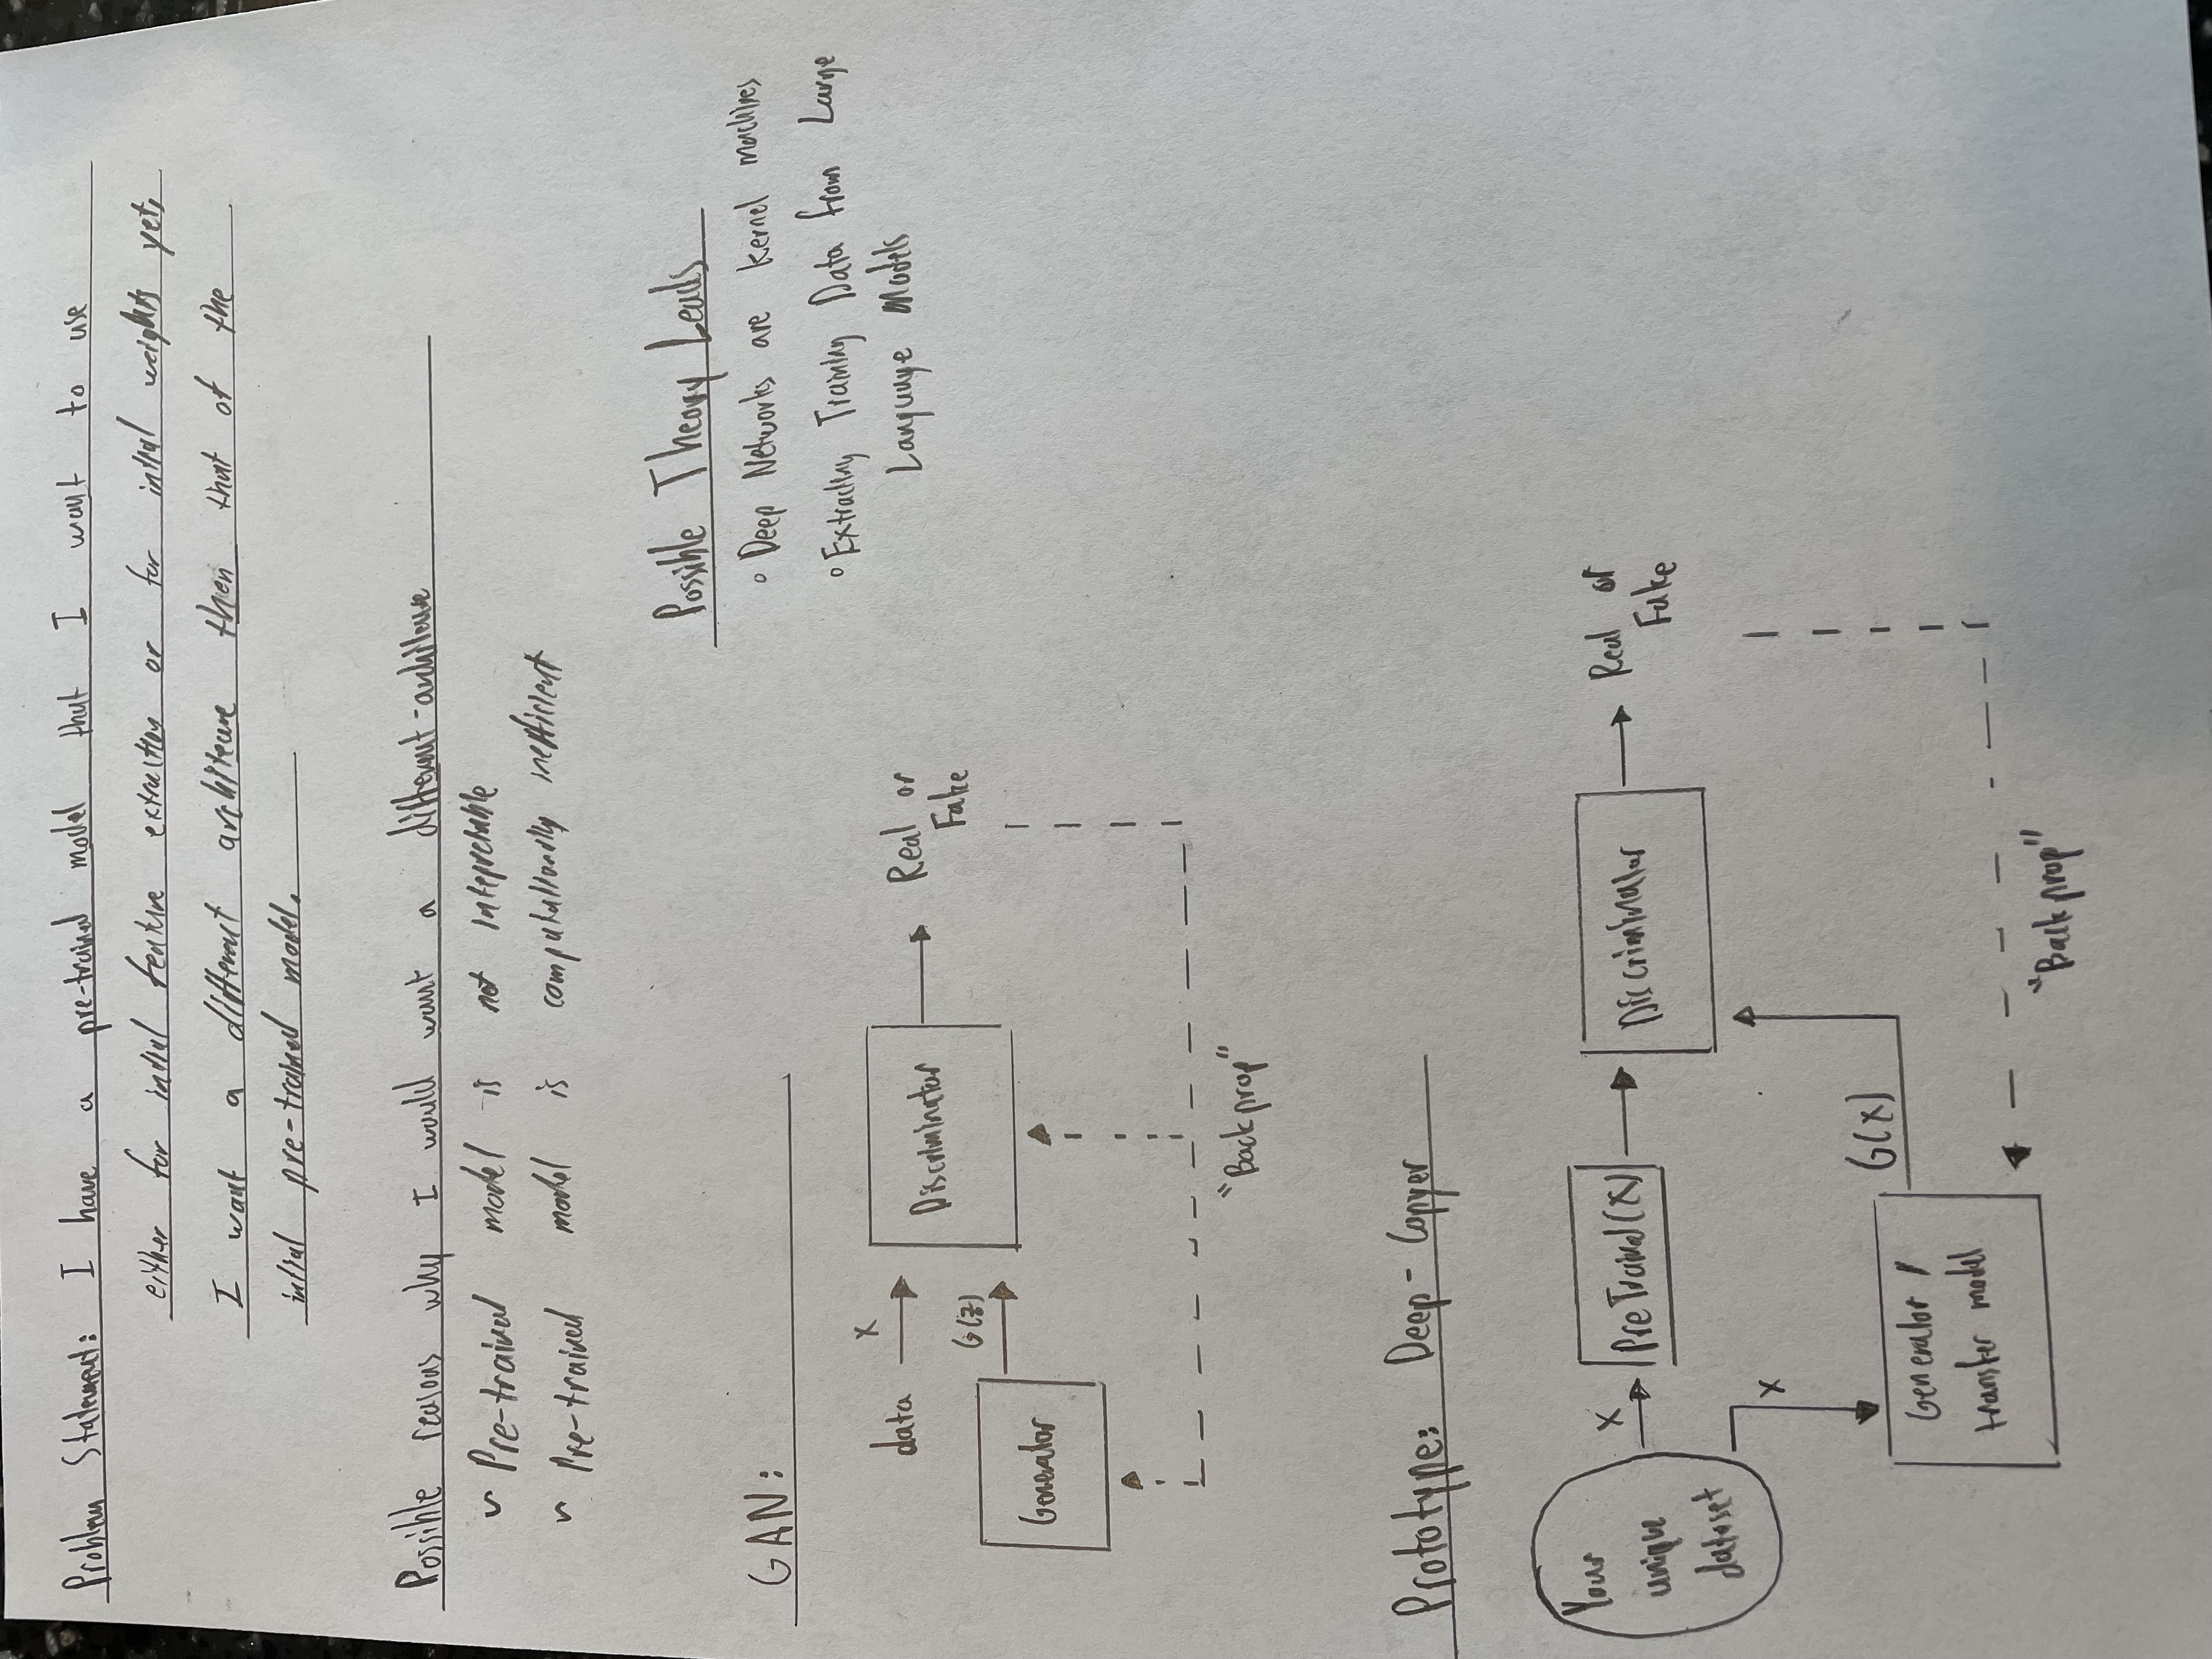 Problem Statement: I have a pre-trained model that I want to use
either for intial feature extraction or for intial weights yet,
I want a different architecure then that of the
intial pre-trained model.
Possible reasons why I would want a different-architecure
~ Pre-trained model is not intepretable
~ Pre-trained model is computationally inefficient
Possible Theory Leads
◦ Deep Networks are kernel machines
◦ Extracting Training Data from Large
Language Models
GAN:
data
X
Discriminator
Real or
Fake
G(z)
Generator
"Backprop"
Prototype: Deep-Copyer
Your
unique
dataset
X
PreTrained(X)
Discriminator
Real or
Fake
X
G(X)
Generator /
transfer model
"Backprop"